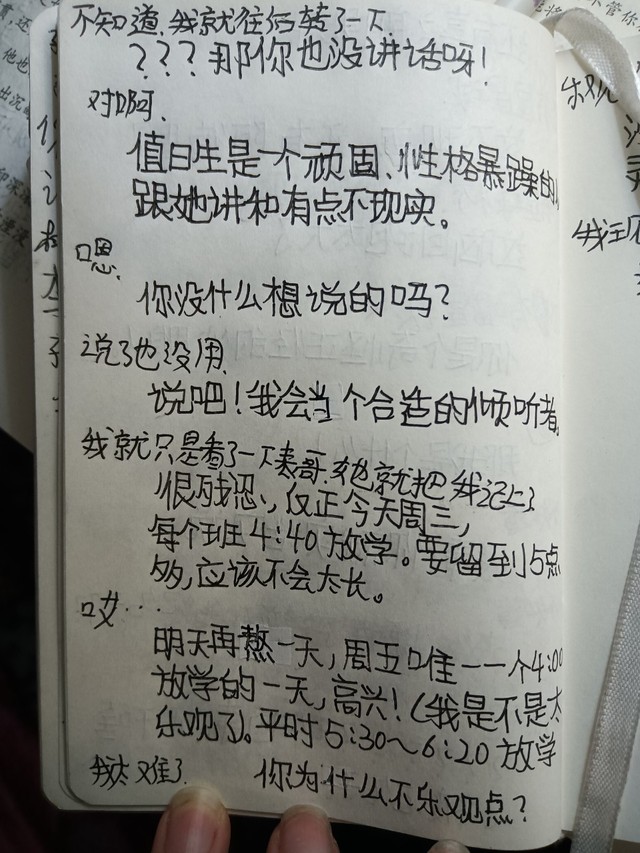 不知道，我就往后转了一下
？？？那你也没讲话呀！
对啊。
值日生是一个顽固、性格暴躁的人
跟她讲和有点不现实。
嗯。
你没什么想说的吗？
说了也没用。
说吧！我会当个合造的倾听者。
我就只是看了一下表哥，她就把我记上了
很残忍，仅正今天周三，
每个班4:40放学。要留到5点
多，应该不会太长。
哎…
明天再熬一天，周五唯一一个4:00
放学的一天，高兴！（我是不是太
乐观了）。平时5:30～6:20放学
我太难了。
你为什么不乐观点？
乐观
我王